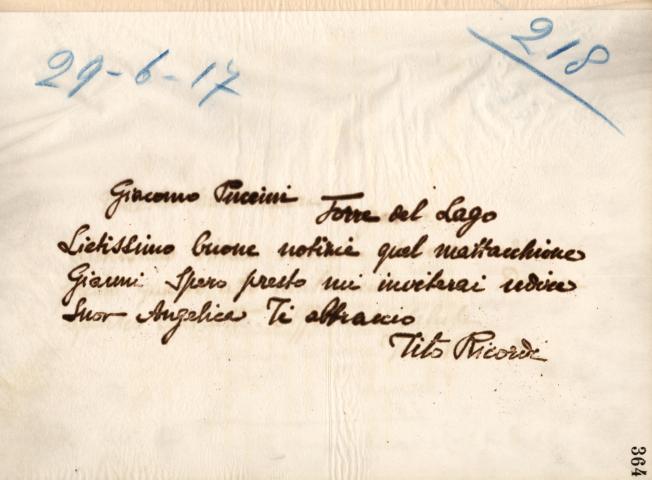 29-6-17
218
Giacomo Puccini Torre del Lago
Lietissimo buone notizie quel mattacchione
Gianni Spero presto mi inviterai udire
Suor Angelica Ti abbraccio
Tito Ricordi
364